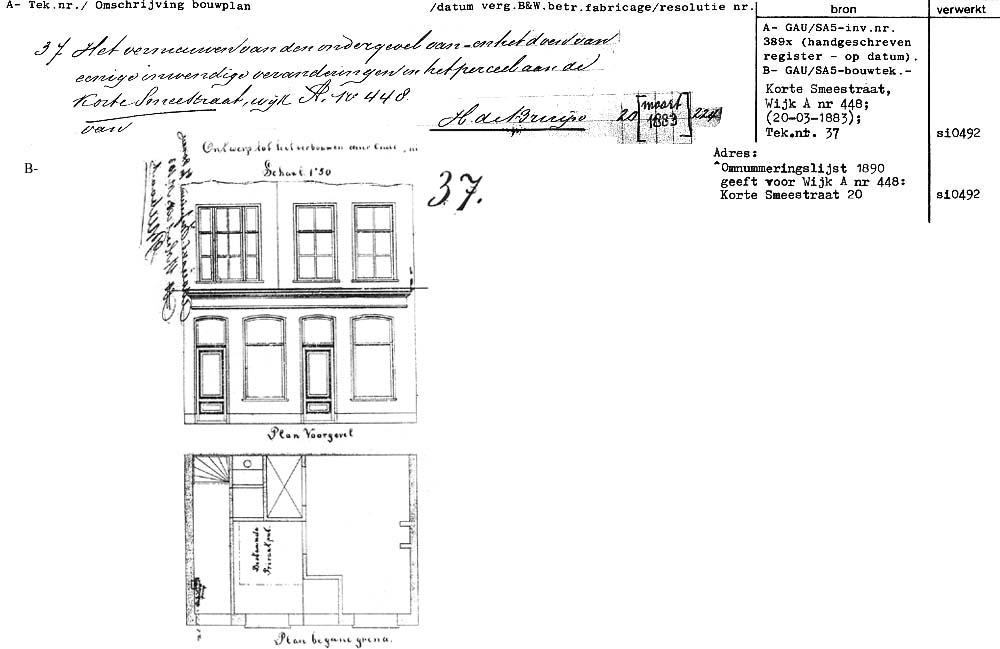 A- Tek.nr./ Omschrijving bouwplan
/datum verg.B&W.betr.fabricage/resolutie nr.
bron
verwerkt
37 Het vernieuwen van den ondergevel van - en het doen van
eenige inwendige veranderingen in het perceel aan de
Korte Smeestraat, wijk A. No 448.
van
H. de Bruijn
20 [maart 1883]
A- GAU/SA5-inv.nr.
389x (handgeschreven
register - op datum).
B- GAU/SA5-bouwtek.-
Korte Smeestraat,
Wijk A nr 448;
(20-03-1883);
Tek.nr. 37
si0492
Adres:
Omnummeringslijst 1890
geeft voor Wijk A nr 448:
Korte Smeestraat 20
si0492
B-
Ontwerp tot het verbouwen
Schaal 1:50
37.
Plan Voorgevel
Bestaande
Plan begane grond.